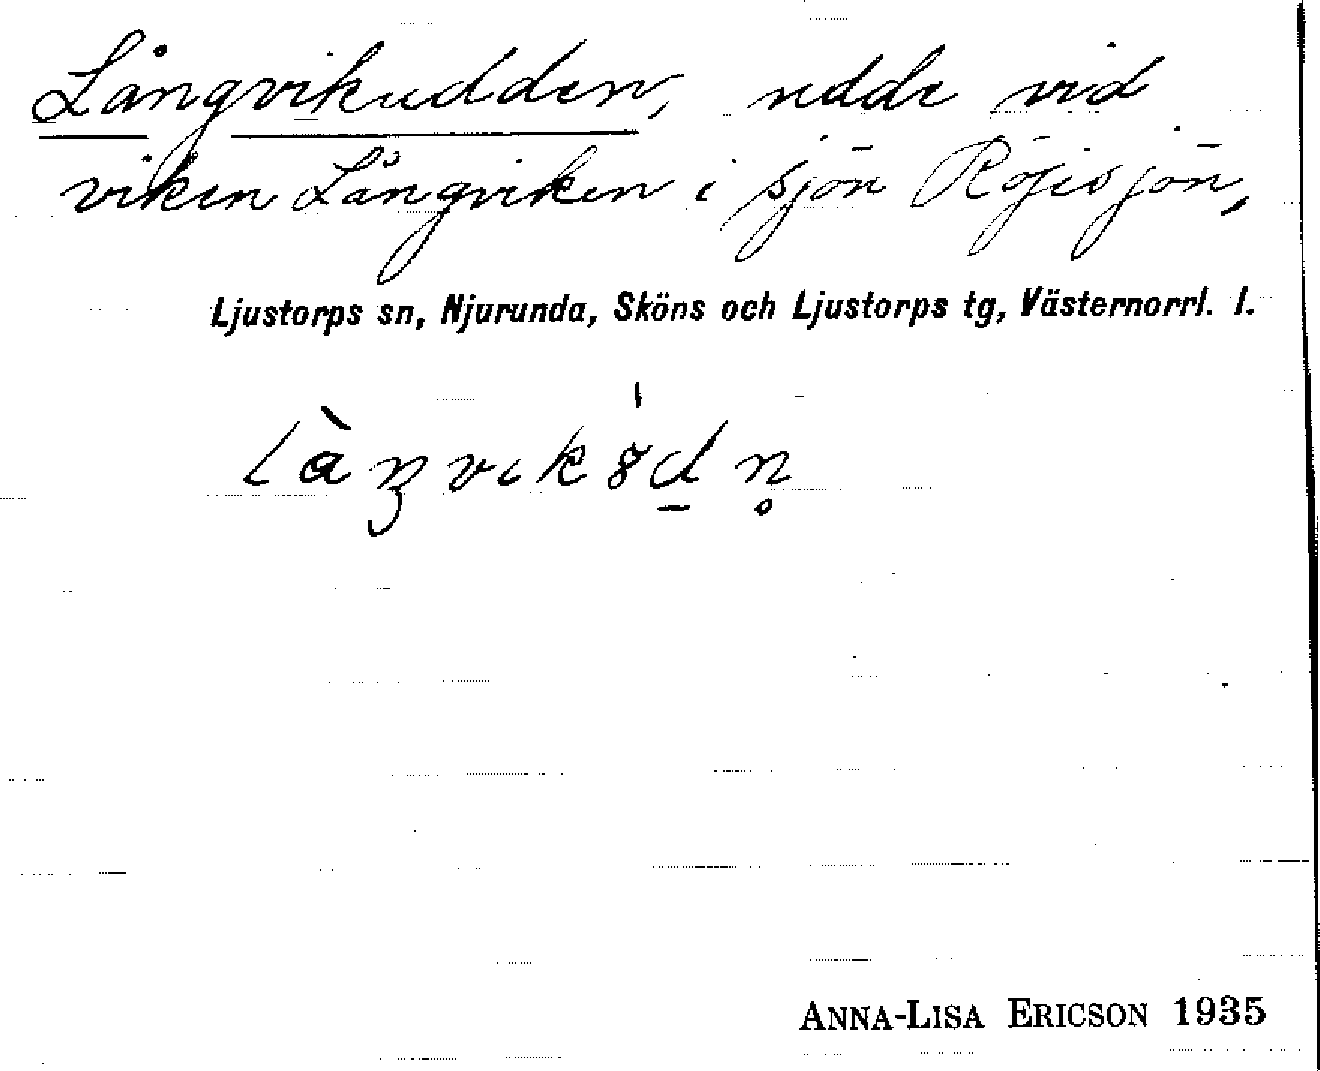 Långvikudden, udde vid
viken Långviken i sjön Röjesjön,
Ljustorps sn, Njurunda, Sköns och Ljustorps tg, Västernorrl. l.
ANNA-LISA ERICSON 1935